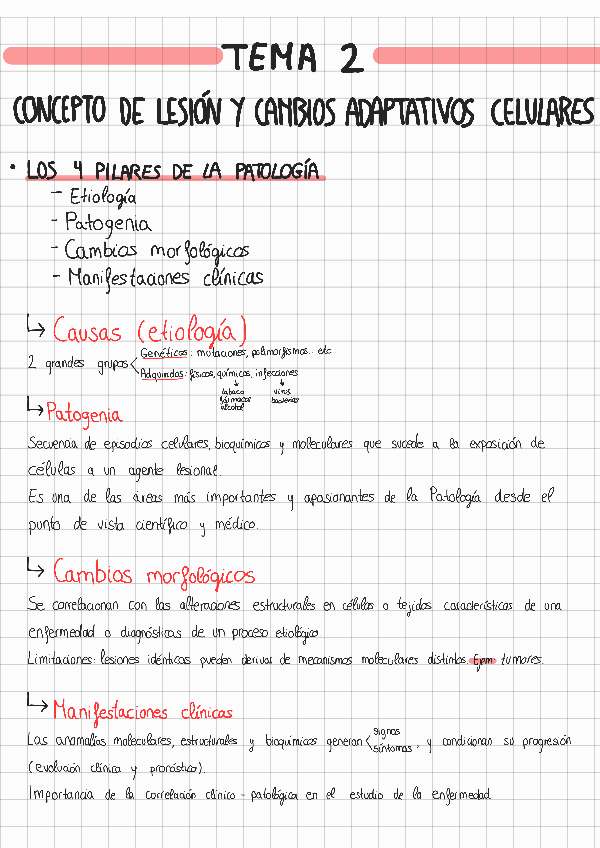 TEMA 2
CONCEPTO DE LESIÓN Y CAMBIOS ADAPTATIVOS CELULARES
• LOS 4 PILARES DE LA PATOLOGÍA
- Etiología
- Patogenia
- Cambios morfológicos
- Manifestaciones clínicas
↳ Causas (etiología)
2 grandes grupos < Genéticos: mutaciones, polimorfismos... etc
Adquiridos: físicos, químicos, infecciones
↓ ↓
tabaco virus
fármacos bacterias
alcohol
↳ Patogenia
Secuencia de episodios celulares, bioquímicos y moleculares que sucede a la exposición de
células a un agente lesional.
Es una de las áreas más importantes y apasionantes de la Patología desde el
punto de vista científico y médico.
↳ Cambios morfológicos
Se correlacionan con las alteraciones estructurales en células o tejidos características de una
enfermedad o diagnósticas de un proceso etiológico
Limitaciones: lesiones idénticas pueden derivar de mecanismos moleculares distintos. Ejem tumores.
↳ Manifestaciones clínicas
Las anomalías moleculares, estructurales y bioquímicas generan < signos síntomas, y condicionan su progresión
(evolución clínica y pronóstico).
Importancia de la correlación clínico - patológica en el estudio de la enfermedad.